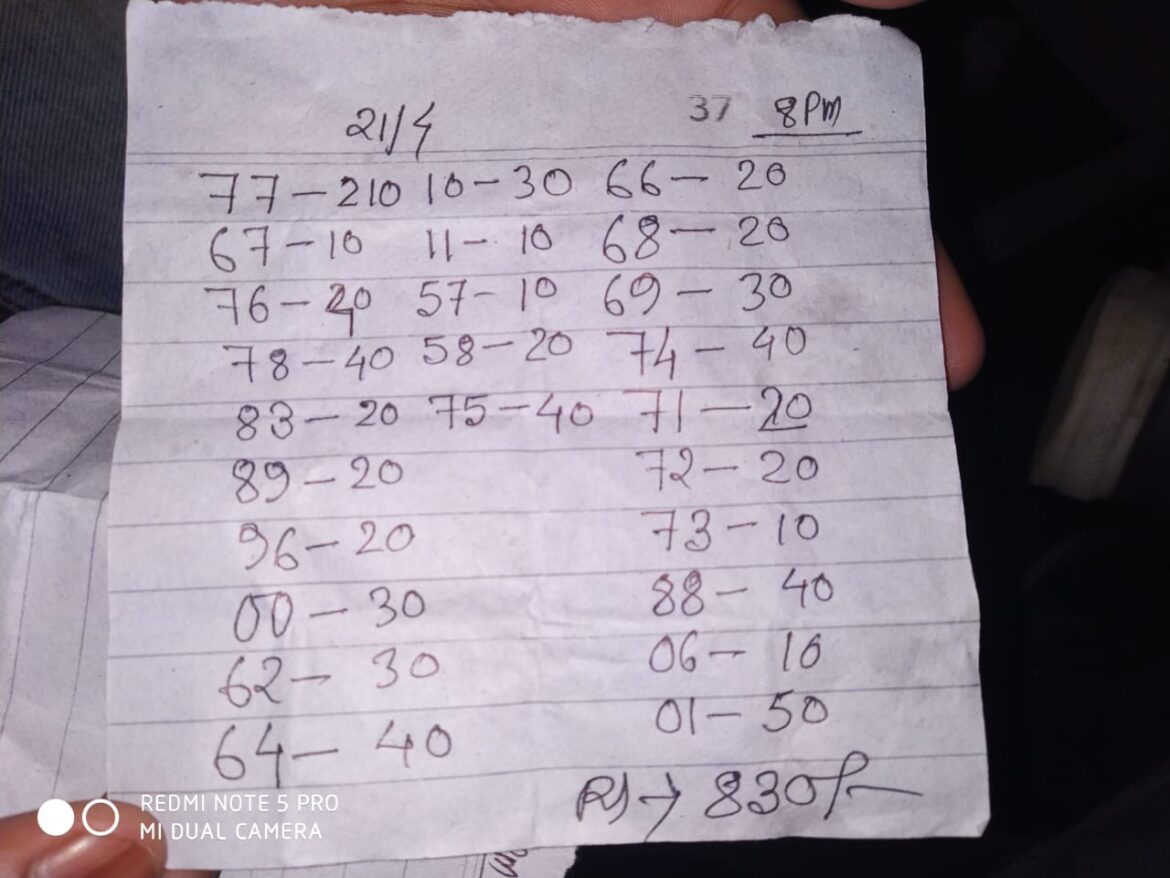 21/4 37 8PM
77-210 10-30 66-20
67-10 11-10 68-20
76-20 57-10 69-30
78-40 58-20 74-40
83-20 75-40 71-20
89-20 72-20
96-20 73-10
00-30 88-40
62-30 06-10
64-40 01-50
RS→830/-
REDMI NOTE 5 PRO
MI DUAL CAMERA